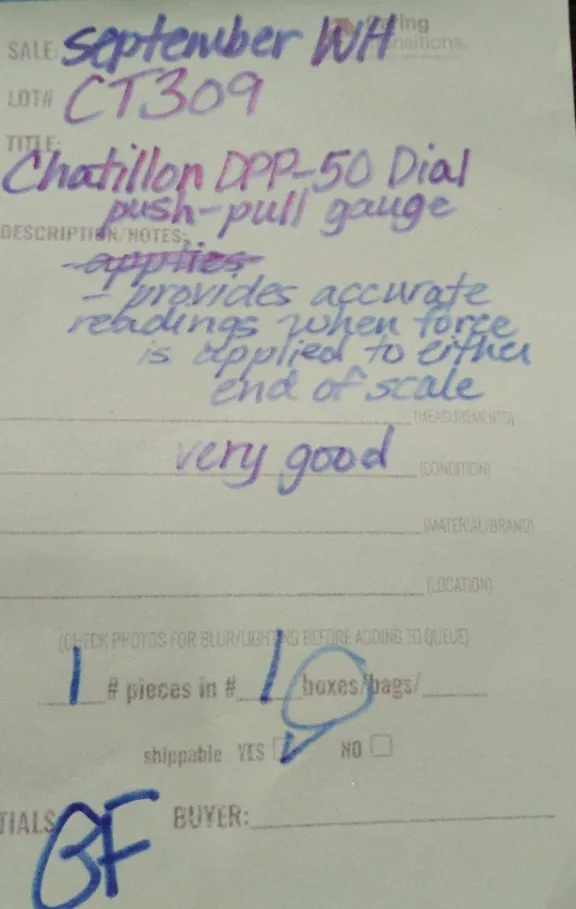 SALE: September WH
LOT# CT309
TITLE:
Chatillon DPP-50 Dial
push-pull gauge
DESCRIPTION/NOTES:
applies
- provides accurate
readings when force
is applied to either
end of scale
(MEASUREMENTS)
very good (CONDITION)
(MATERIAL/BRAND)
(LOCATION)
(CHECK PHOTOS FOR BLUR/LIGHTING BEFORE ADDING TO QUEUE)
1 # pieces in # 1 boxes/bags/
shippable YES NO
TIALS GF BUYER: